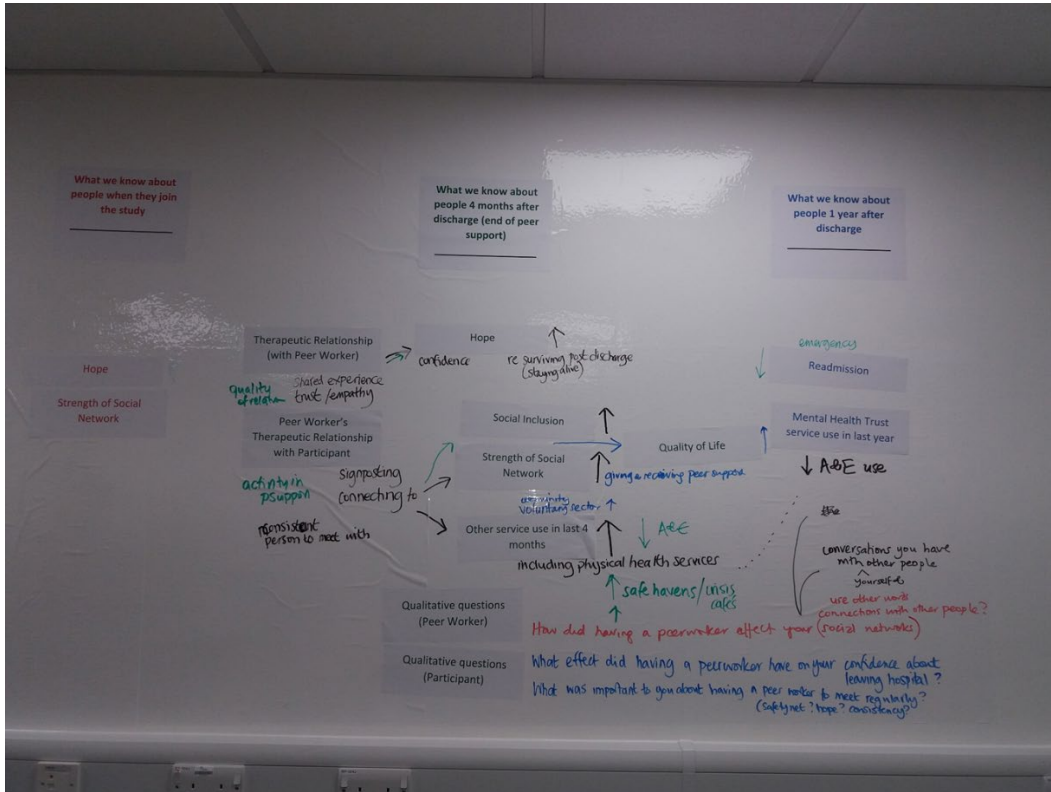 What we know about
people when they join
the study
What we know about
people 4 months after
discharge (end of peer
support)
What we know about
people 1 year after
discharge
Hope
Strength of Social
Network
Therapeutic Relationship
(with Peer Worker)
quality
of relation
shared experience
trust / empathy
Peer Worker's
Therapeutic Relationship
with Participant
activity in
psupport
signposting
connecting to
consistent
person to meet with
Hope
confidence
re surviving post discharge
(staying alive)
Social Inclusion
Strength of Social
Network
Quality of Life
giving & receiving peer support
voluntary sector
Other service use in last 4
months
A&E
including physical health services
safe havens / crisis
cafes
emergency
Readmission
Mental Health Trust
service use in last year
A&E use
conversations you have
with other people
yourself
use other words
connections with other people?
Qualitative questions
(Peer Worker)
How did having a peerworker affect your (social networks)
Qualitative questions
(Participant)
What effect did having a peerworker have on your confidence about
leaving hospital?
What was important to you about having a peer worker to meet regularly?
(safety net? hope? consistency?